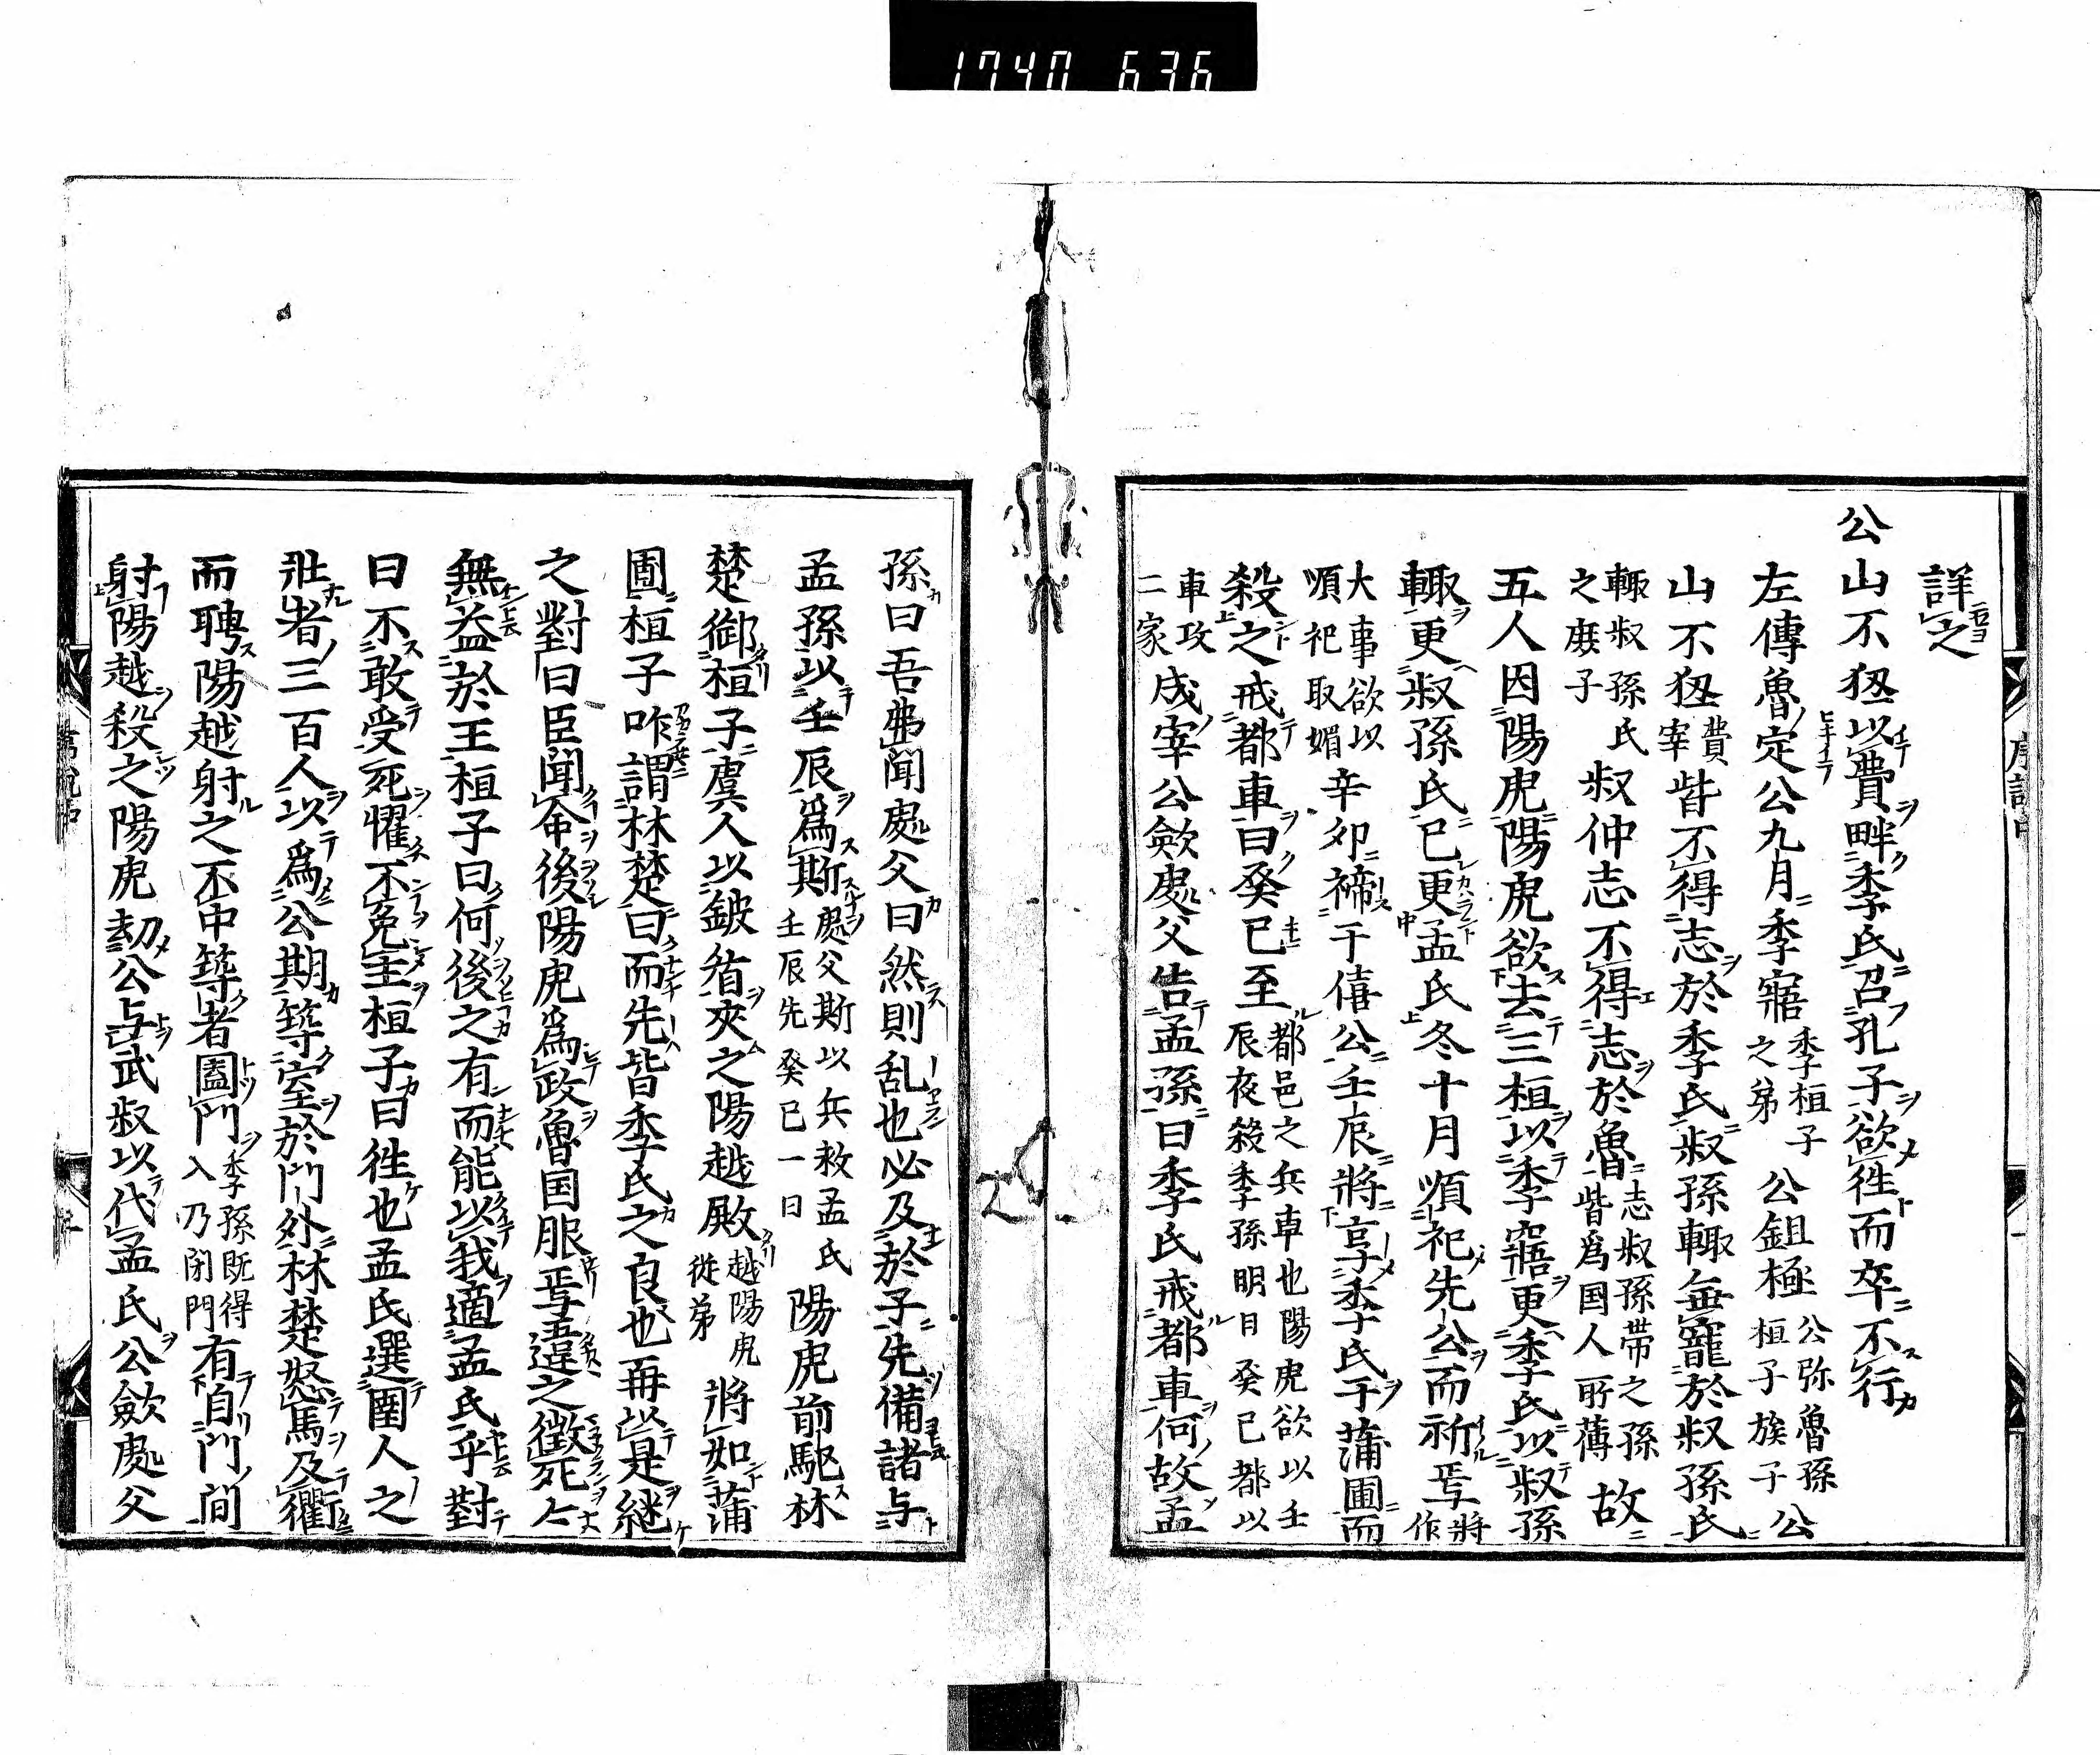 1740 636
詳之
公山不狃以費畔季氏召孔子欲往而卒不行
左傳魯定公九月季寤季桓子之弟公鉏極公弥魯孫桓子族子公
山不狃費宰皆不得志於季氏叔孫輙無寵於叔孫氏
輙叔孫氏之庻子叔仲志不得志於魯志叔孫帯之孫皆爲国人所薄故
五人因陽虎陽虎欲去三桓以季寤更季氏以叔孫
輙更叔孫氏已更孟氏冬十月順祀先公而祈焉将作
大事欲以順祀取媚辛夘禘于僖公壬辰將享季氏于蒲圃而
殺之戒都車曰癸巳至都邑之兵車也陽虎欲以壬辰夜殺季孫明日癸巳都以
車攻二家成宰公歛處父告孟孫曰季氏戒都車何故孟
孫曰吾弗聞處父曰然則乱也必及於子先備諸与
孟孫以壬辰爲斯處父斯以兵救孟氏壬辰先癸已一日陽虎前駈林
楚御桓子虞人以鈹盾夾之陽越殿越陽虎從弟將如蒲
圃桓子咋謂林楚曰而先皆季氏之良也再以是継
之對曰臣聞命後陽虎爲政魯国服焉違之徴死々
無益於王桓子曰何後之有而能以我適孟氏乎對
曰不敢受死懼不免主桓子曰徃也孟氏選圉人之
壯者三百人以爲公期築室於門外林楚怒馬及衢
而騁陽越射之不中築者闔門季孫既得入乃閉門有自門間
射陽越殺之陽虎刼公与武叔以代孟氏公歛處父